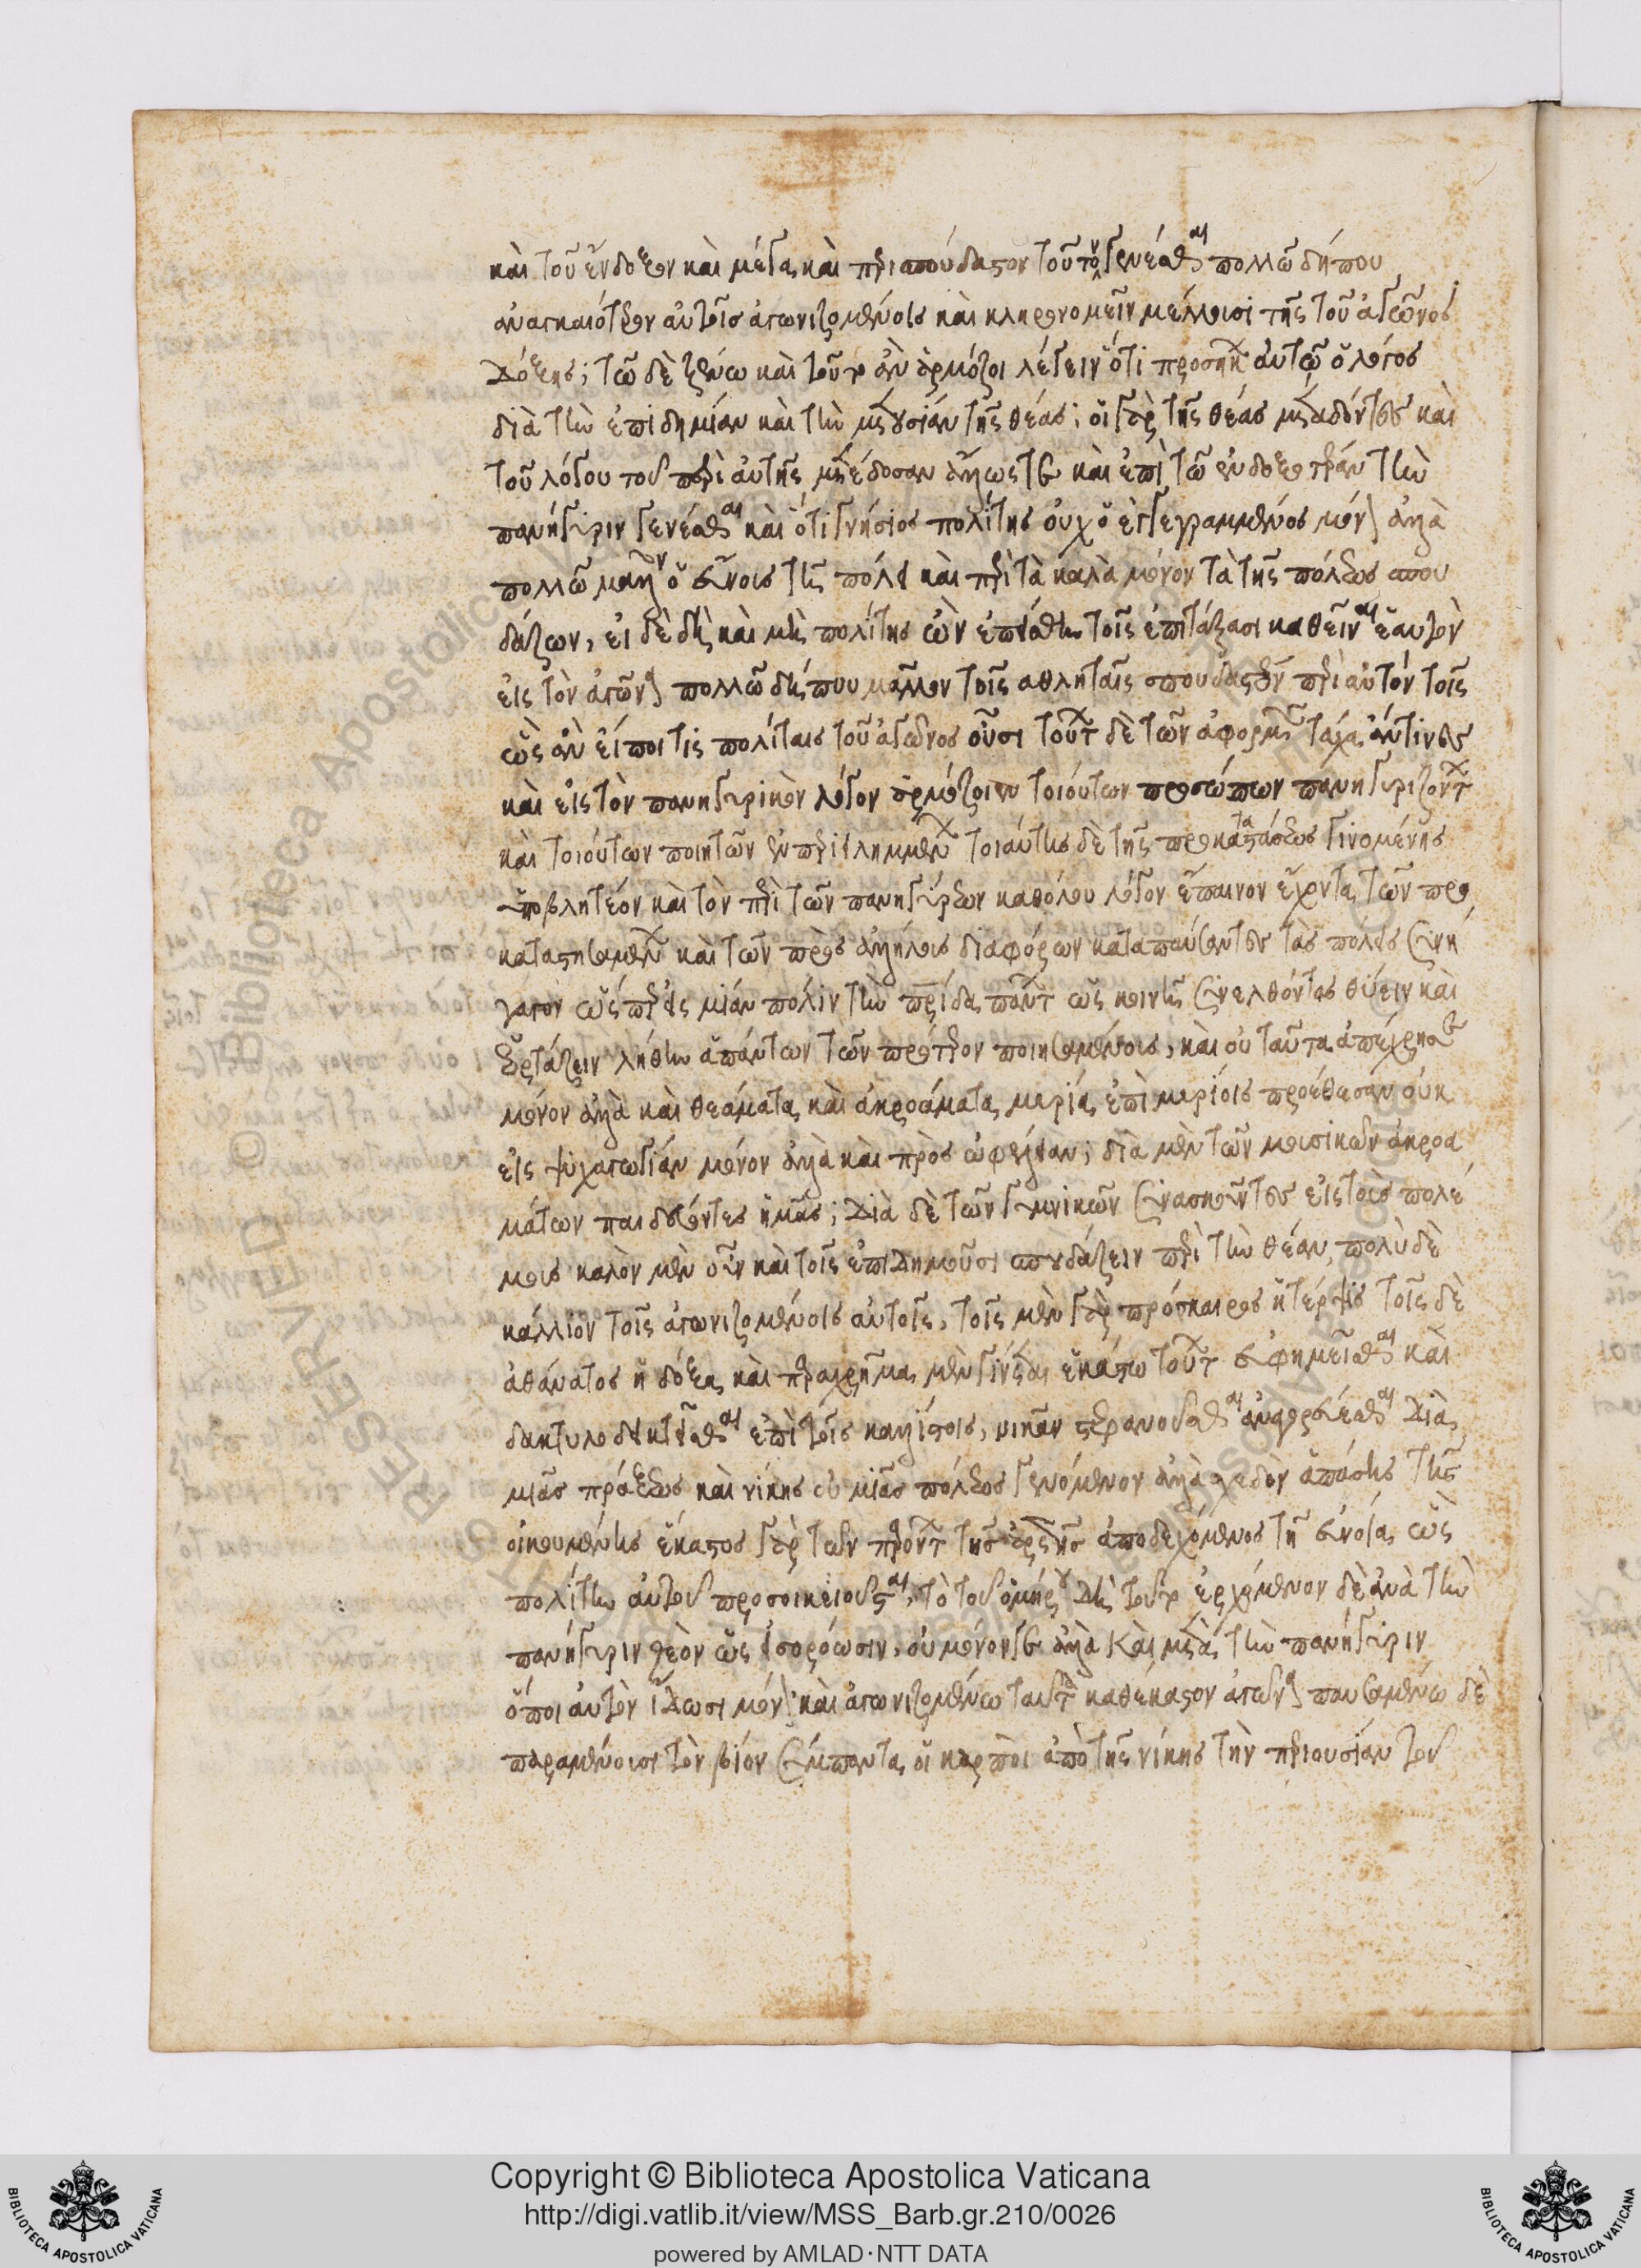 καὶ τοῦ ἔνδοξον καὶ μέγα καὶ περισπούδαστον τοῦτον γενέσθαι πολλῶ δήπου
ἀναγκαιότερον αὐτοῖς ἀγωνιζομένοις καὶ κληρονομεῖν μέλλουσι τῆς τοῦ ἀγῶνος
δόξης; τῶ δὲ ξένω καὶ τοῦτο ἂν ἁρμόζοι λέγειν ὅτι προσήκει αὐτῶ ὁ λόγος
διὰ τὴν ἐπιδημίαν καὶ τὴν μετουσίαν τῆς θέας; οἱ γὰρ τῆς θέας μεταδόντες καὶ
τοῦ λόγου τοῦ περὶ αὐτῆς μετέδοσαν ἄλλως τε καὶ ἐπὶ τῶ ἐνδοξοτέραν τὴν
πανήγυριν γενέσθαι καὶ ὅτι γνήσιος πολίτης οὐχ ὁ ἐγγεγραμμένος μόνον ἀλλὰ
πολλῶ μᾶλλον ὁ εὔνους τῆ πόλει καὶ περὶ τὰ καλὰ μόνον τὰ τῆς πόλεως σπου
δάζων, εἰ δὲ δὴ καὶ μὴ πολίτης ὢν ἐπείσθη τοῖς ἐπιτάξασι καθεῖναι ἑαυτὸν
εἰς τὸν ἀγῶνα πολλῶ δήπου μᾶλλον τοῖς ἀθληταῖς σπουδαστέον περὶ αὐτόν τοῖς
ὡς ἂν εἴποι τις πολίταις τοῦ ἀγῶνος οὖσι τούτων δὲ τῶν ἀφορμῶν τάχα ἄν τινες
καὶ εἰς τὸν πανηγυρικὸν λόγον ἁρμόζοιεν τοιούτων προσώπων πανηγυριζόντων
καὶ τοιούτων ποιητῶν ἐμπεριειλημμένων τοιαύτης δὲ τῆς προκαταστάσεως γινομένης
ὑποβλητέον καὶ τὸν περὶ τῶν πανηγύρεων καθόλου λόγον ἔπαινον ἔχοντα τῶν προ
καταστησαμένων καὶ τῶν πρὸς ἀλλήλους διαφόρων καταπαύσαντες τὰς πόλεις συνή
γαγον ὡσπερεὶ εἰς μίαν πόλιν τὴν πατρίδα πάντων ὡς κοινῆ συνελθόντας θύειν καὶ
ἑορτάζειν λήθην ἁπάντων τῶν πρότερον ποιησαμένους, καὶ οὐ ταῦτα ἀπέχρησε
μόνον ἀλλὰ καὶ θεάματα καὶ ἀκροάματα μυρία ἐπὶ μυρίοις προέθεσαν οὐκ
εἰς ψυχαγωγίαν μόνον ἀλλὰ καὶ πρὸς ὠφέλειαν; διὰ μὲν τῶν μουσικῶν ἀκροα
μάτων παιδεύοντες ἡμᾶς; διὰ δὲ τῶν γυμνικῶν συνασκοῦντες εἰς τοὺς πολέ
μους καλὸν μὲν οὖν καὶ τοῖς ἐπιδημοῦσι σπουδάζειν περὶ τὴν θέαν, πολὺ δὲ
κάλλιον τοῖς ἀγωνιζομένοις αὐτοῖς, τοῖς μὲν γὰρ πρόσκαιρος ἡ τέρψις τοῖς δὲ
ἀθάνατος ἡ δόξα καὶ παραχρῆμα μὲν γίνεται ἑκάστω τούτων εὐφημεῖσθαι καὶ
δακτυλοδεικτεῖσθαι ἐπὶ τοῖς καλλίστοις, νικᾶν στεφανοῦσθαι ἀναγορεύεσθαι διὰ
μιᾶς πράξεως καὶ νίκης οὐ μιᾶς πόλεως γενόμενον ἀλλὰ σχεδὸν ἁπάσης τῆς
οἰκουμένης ἕκαστος γὰρ τῶν παρόντων τῆς ἀρετῆς ἀποδεχόμενος τῆ εὐνοία ὡς
πολίτην αὐτοῦ προσοικειοῦται, τὸ τοῦ ὁμήρου δὴ τοῦτο ἐρχόμενον δὲ ἀνὰ τὴν
πανήγυριν θεὸν ὣς εἰσορόωσιν, οὐ μόνον γε ἀλλὰ καὶ μετὰ τὴν πανήγυριν
ὅποι αὐτὸν ἴδωσι μόνον καὶ ἀγωνιζομένω ταῦτα καθέκαστον ἀγῶνα παυσαμένω δὲ
παραμένουσι τὸν βίον σύμπαντα οἱ καρποὶ ἀπὸ τῆς νίκης τὴν περιουσίαν τοῦ
Copyright © Biblioteca Apostolica Vaticana
http://digi.vatlib.it/view/MSS_Barb.gr.210/0026
powered by AMLAD·NTT DATA
BIBLIOTECA APOSTOLICA VATICANA
BIBLIOTECA APOSTOLICA VATICANA